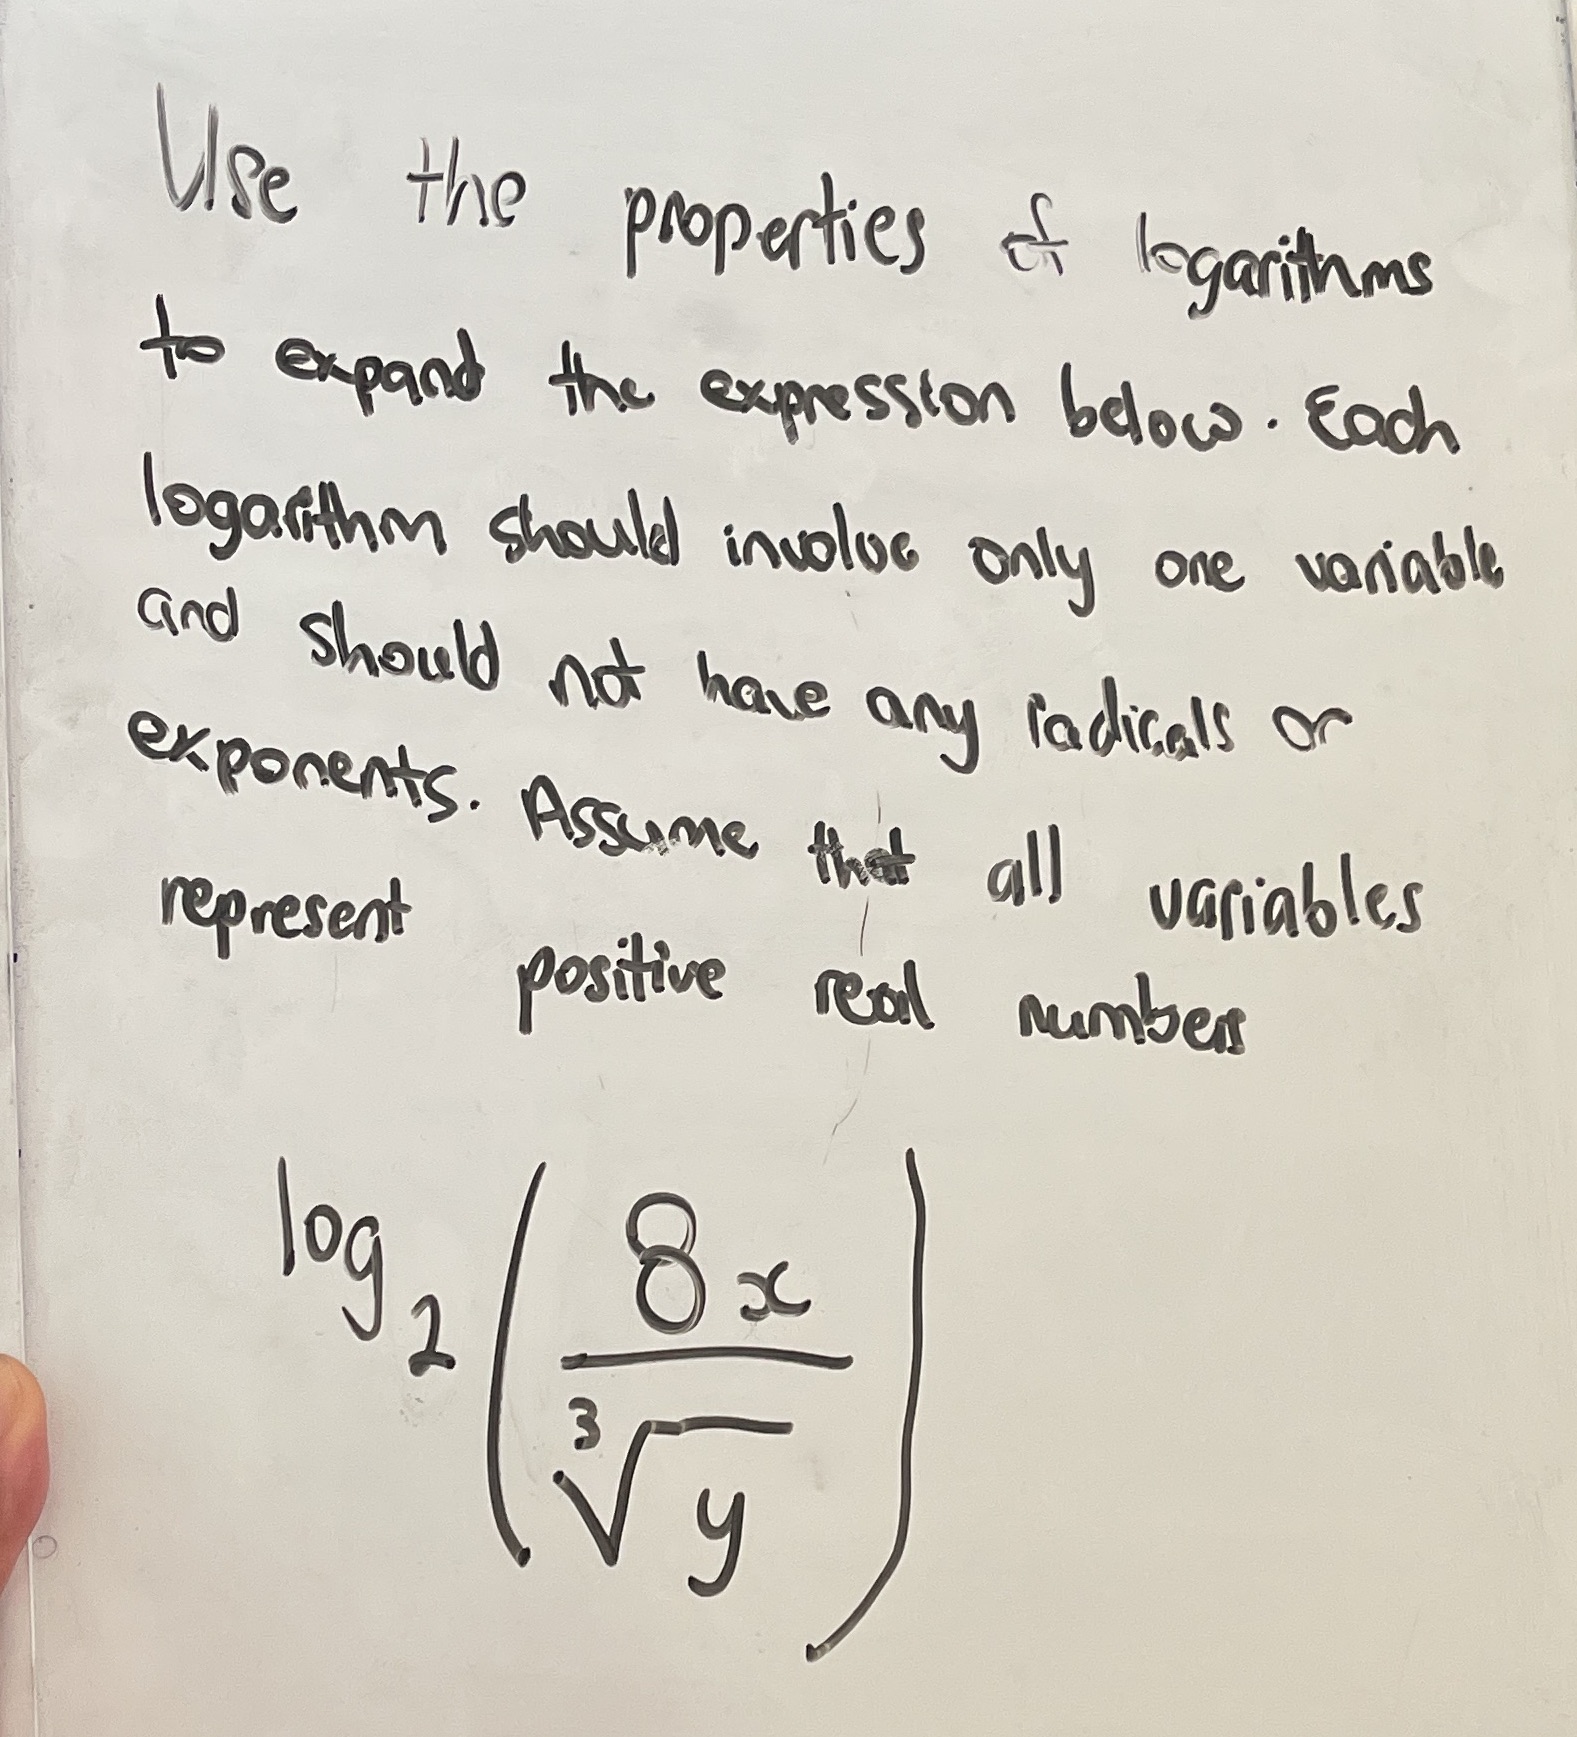 Use the properties of logarithms
to expand the expression below. Each
logarithm should involve only one variable
and should not have any radicals or
exponents. Assume that all variables
represent positive real numbers
log₂(8x/∛y)